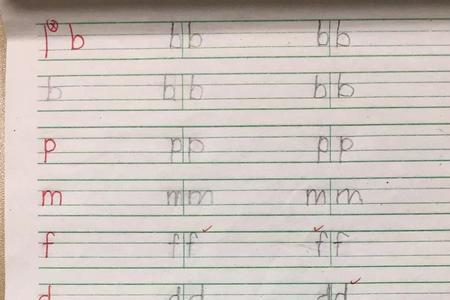 b bb bb
b bb bb
p pp pp
m mm mm
f ff ff
d dd dd